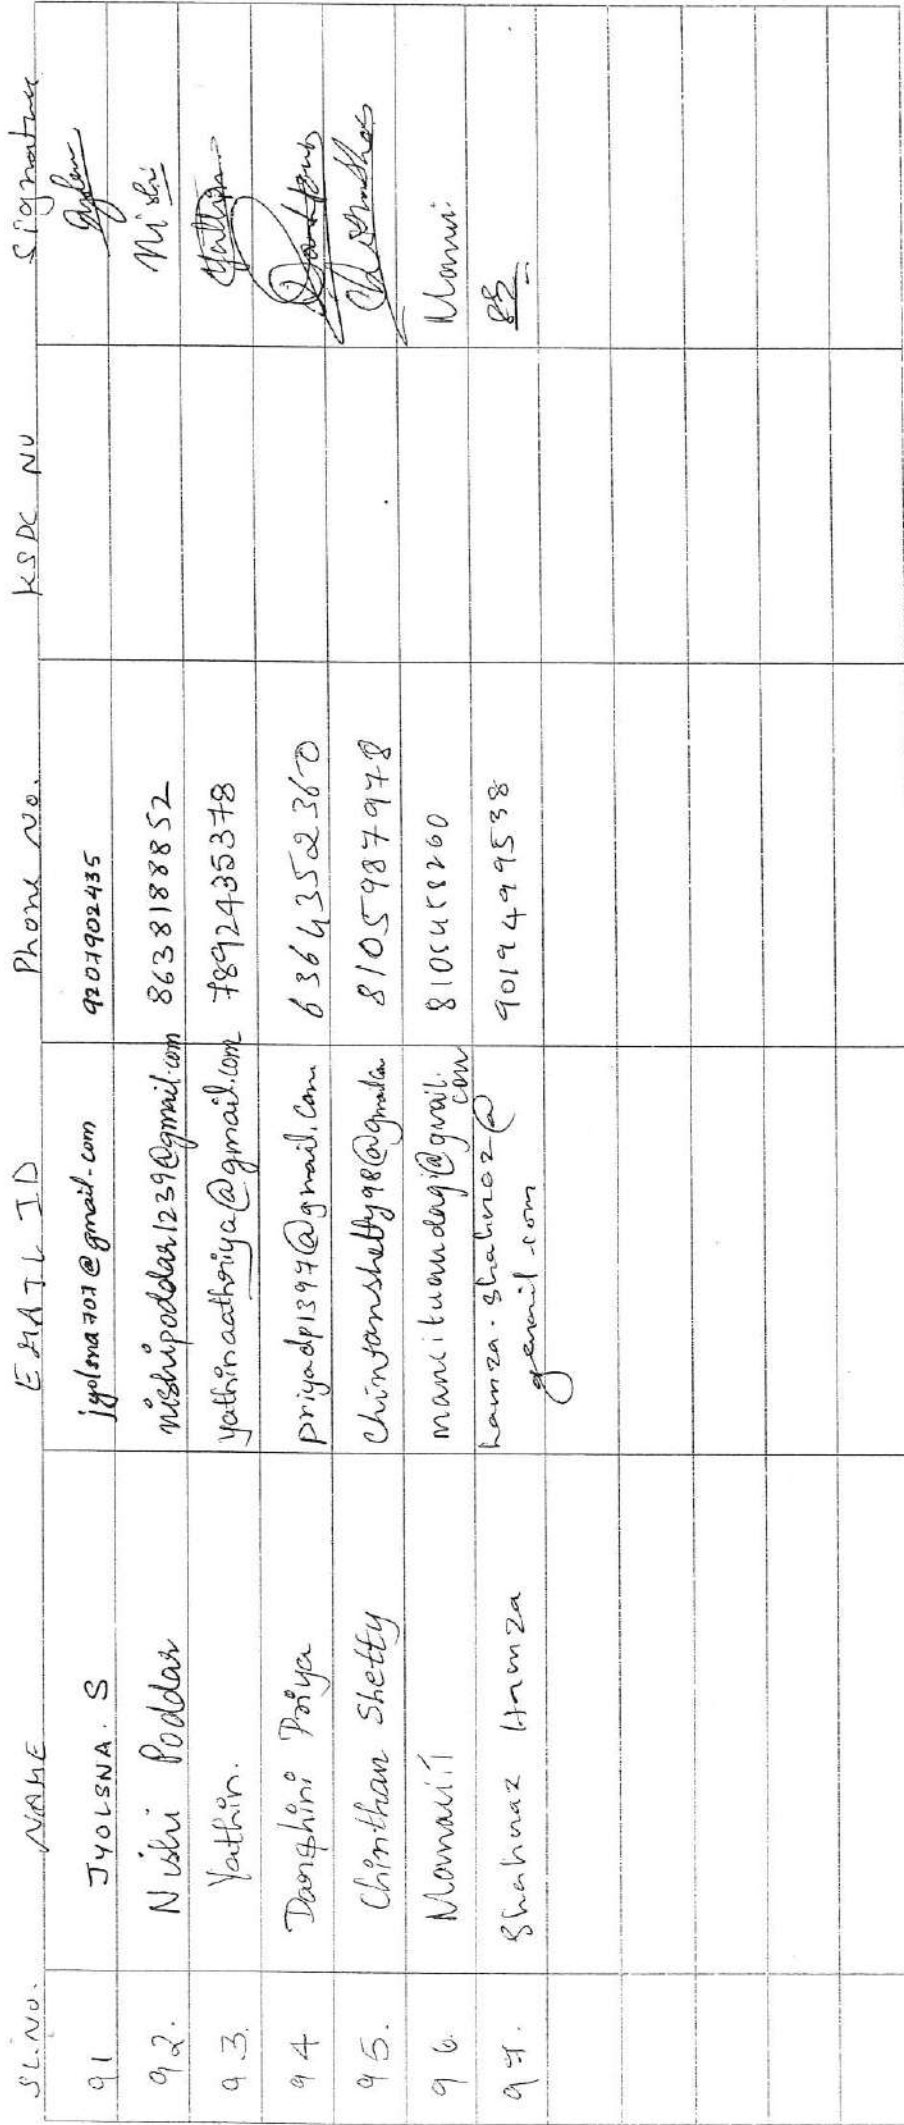 SL.NO. NAME EMAIL ID Phone No. KSDC NO Signature
91 JYOLSNA. S jyolsna707@gmail.com 9207902435
92. Nishi Poddar nishipoddar1239@gmail.com 8638188852 Nishi
93. Yathin. yathinaathriya@gmail.com 7892435378 Yathin
94 Darshini Priya priyadp1397@gmail.com 6364352360
95. Chinthan Shetty chintanshetty98@gmail.com 8105987978
96. manituandagi@gmail.com
97. Shahnaz Hamza hamza.shahnaz@
gmail.com 9019499538